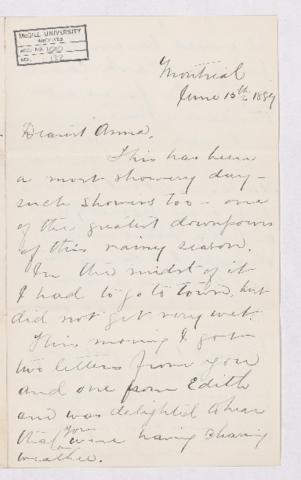 McGILL UNIVERSITY
ARCHIVES
ACC. NO.
REF.
Montreal
June 15th 1889
Dearest Anna,
This has been
a most showery day –
such showers too – one
of the greatest downpours
of this rainy season.
In the midst of it
I had to go to town, but
did not get very wet.
This morning I got
two letters from you
and one from Edith
and was delighted to hear
that you were having
weather.